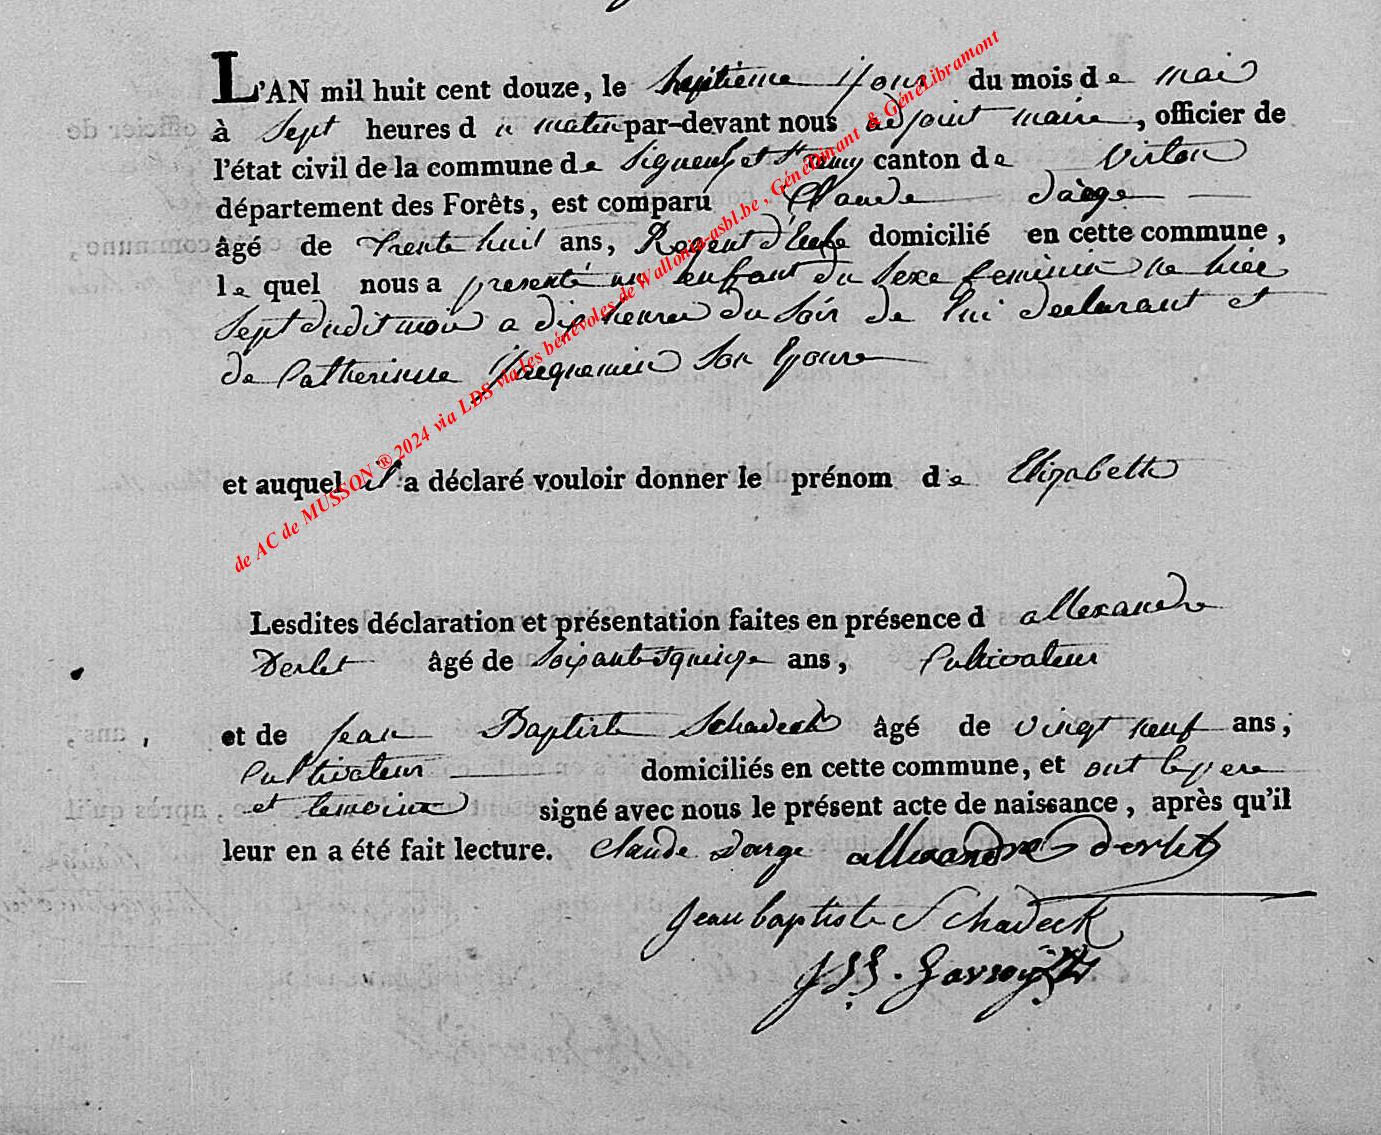 L'AN mil huit cent douze, le heptieme jour du mois de mai
à Sept heures du matin par-devant nous adjoint maire, officier de
l'état civil de la commune de Signeulx et St Remy canton de Virton
département des Forêts, est comparu Claude Darge
âgé de trente huit ans, Regent d'Ecole domicilié en cette commune,
lequel nous a presenté un enfant du sexe feminin ne hier
Sept dudit mois a dix heures du Soir de lui declarant et
de Catherinne Jacquemin Son Epouse
et auquel il a déclaré vouloir donner le prénom de Elizabeth
Lesdites déclaration et présentation faites en présence d allexandre
Derlet âgé de Soixante quinze ans, Cultivateur
et de Jean Baptiste Schadeck âgé de vingt neuf ans,
Cultivateur domiciliés en cette commune, et ont le pere
et temoins signé avec nous le présent acte de naissance, après qu'il
leur en a été fait lecture. Claude Darge allexandre derlet
Jean baptiste Schadeck
de AC de MUSSON ® 2024 via LDS via les bénévoles de Wallonia-asbl.be, GénéDinant & GénéLibramont